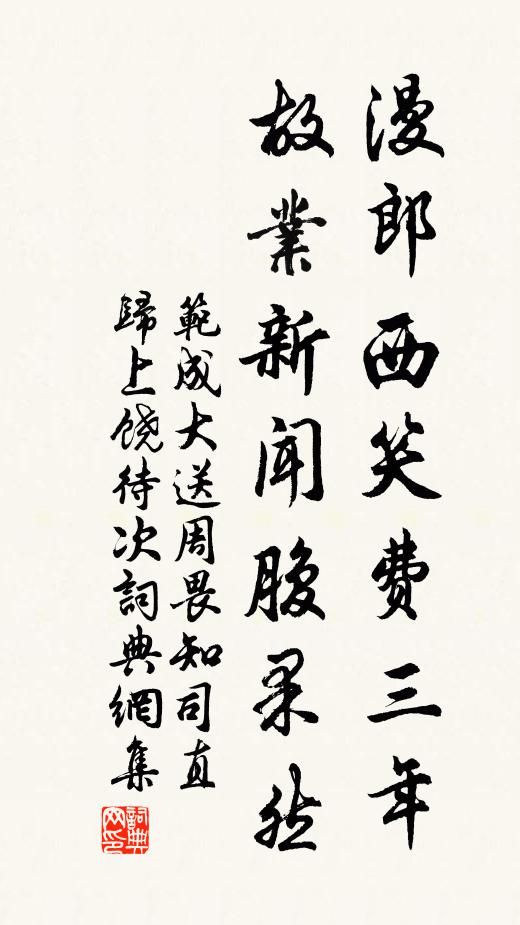 漫郎西笑费三年
故業新闻腹果然
範成大送周畏知司直
歸上饶待次詞典網集
詞典网印